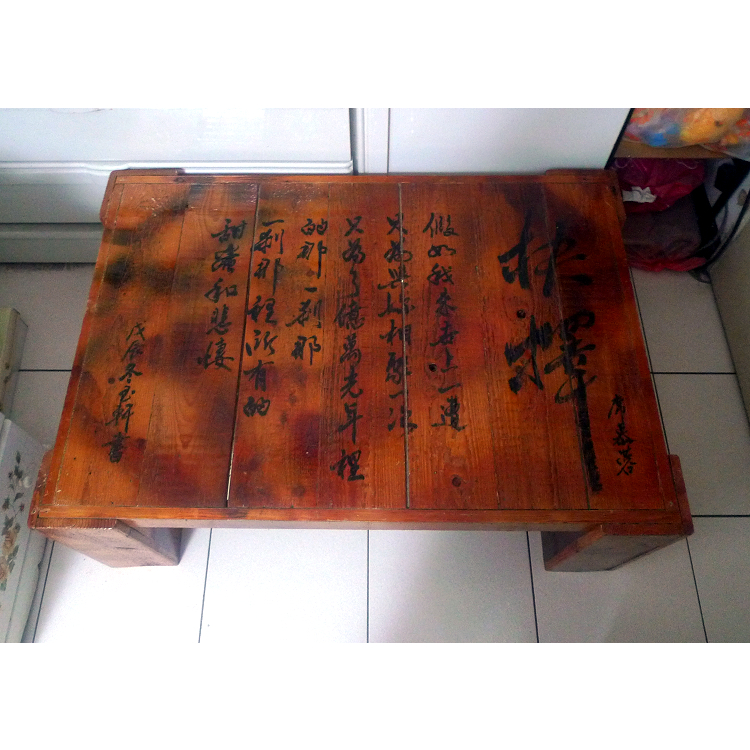 抉擇
席慕蓉
假如我來世上一遭
只為與你相聚一次
只為了億萬光年裡
的那一剎那
一剎那裡所有的
甜蜜和悲悽
戊辰冬玉軒書